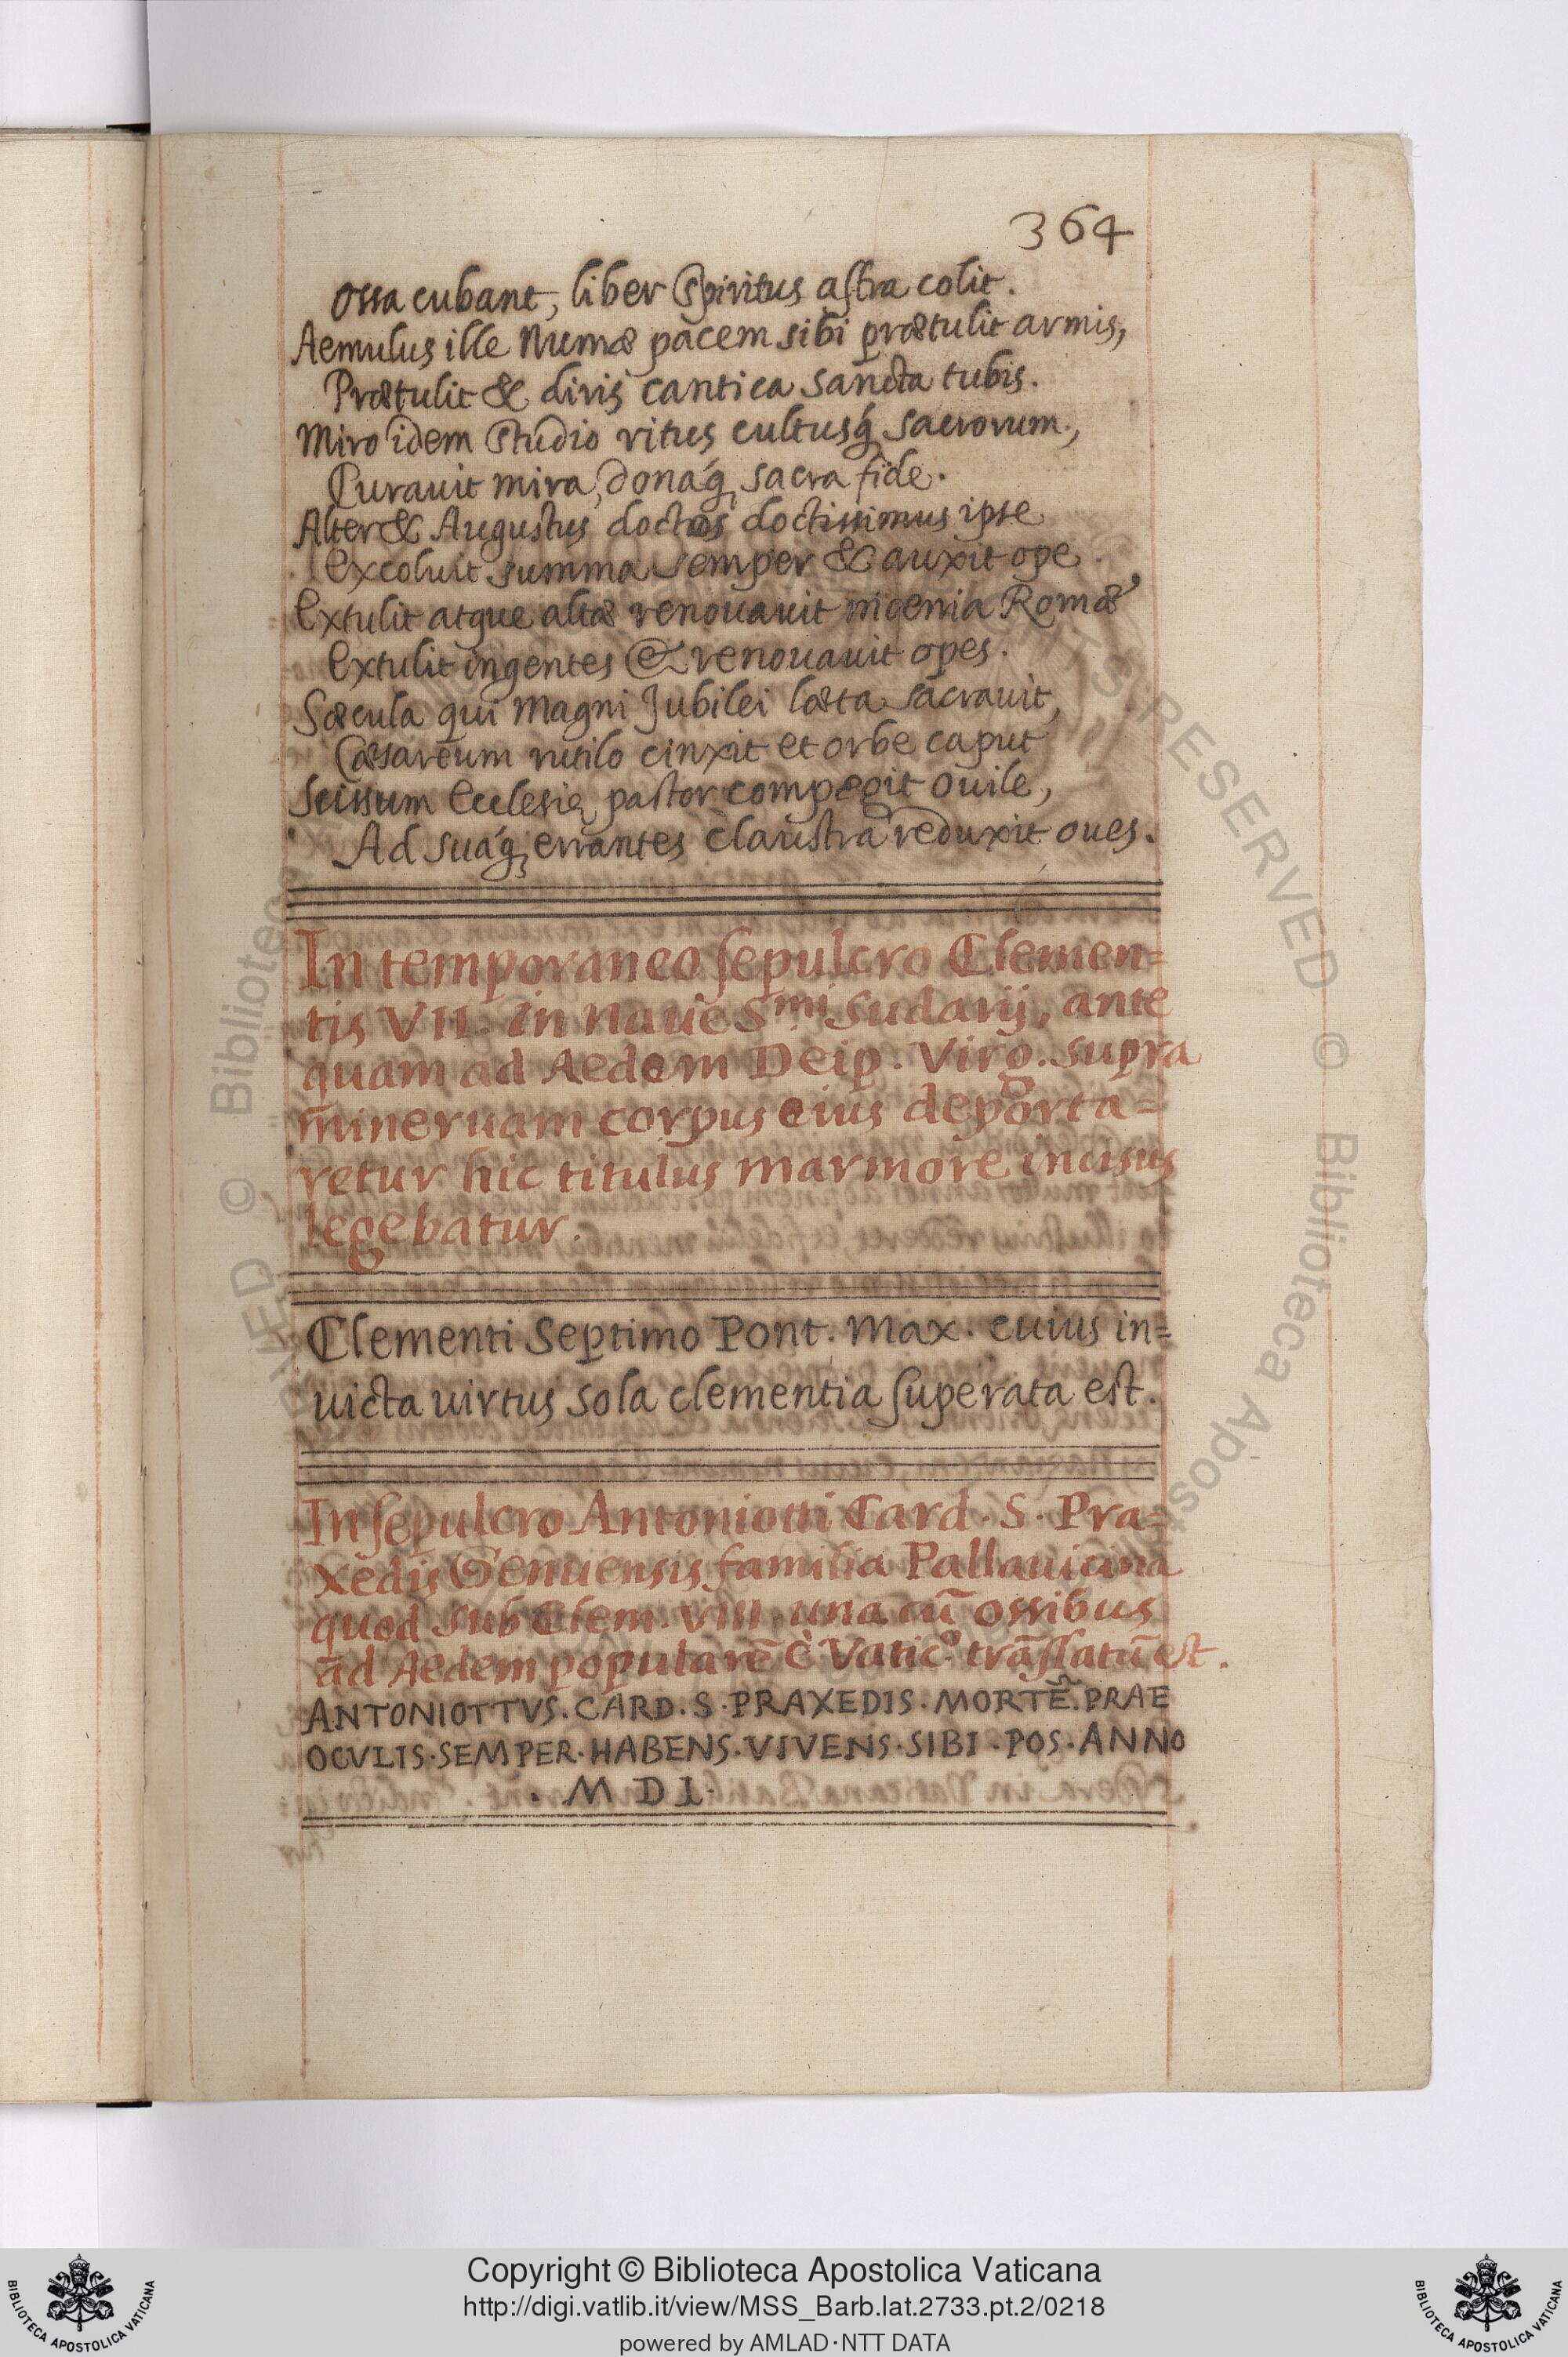 364
ossa cubant, liber Spiritus astra colit.
Aemulus ille Numæ pacem sibi prætulit armis,
Prætulit & diris cantica sancta tubis.
Miro idem studio ritus cultusq́ sacrorum,
Curauit mira, donáq sacra fide.
Alter & Augustus doctos doctissimus ipse
Excoluit summa semper & auxit ope.
Extulit atque altæ renouauit moenia Romæ
Extulit ingentes & renouauit opes.
Sæcula qui Magni Jubilei læta sacrauit,
Cæsareum rutilo cinxit et orbe caput
Scissum Ecclesię pastor compegit ouile,
Ad suáq errantes claustra reduxit oues.
In temporaneo sepulcro Clemen=
tis VII. in naue Smi Sudarij, ante
quam ad Aedem Deip. Virg. supra
mineruam corpus eius deporta=
retur hic titulus marmore incisus
legebatur.
Clementi Septimo Pont. Max. cuius in=
uicta uirtus sola clementia superata est.
In sepulcro Antoniotti Card. S. Pra=
xedis Genuensis familia Pallauicina
quod sub Clem. VIII. una cū ossibus
ad Aedem popularē è Vatic.º trāslatū est.
ANTONIOTTVS. CARD. S. PRAXEDIS. MORTẼ. PRAE
OCVLIS. SEMPER. HABENS. VIVENS. SIBI. POS. ANNO
. M D I.
RESERVED © Biblioteca Apost
VED © Biblioteca
BIBLIOTECA APOSTOLICA VATICANA
Copyright © Biblioteca Apostolica Vaticana
http://digi.vatlib.it/view/MSS_Barb.lat.2733.pt.2/0218
powered by AMLAD·NTT DATA
BIBLIOTECA APOSTOLICA VATICANA